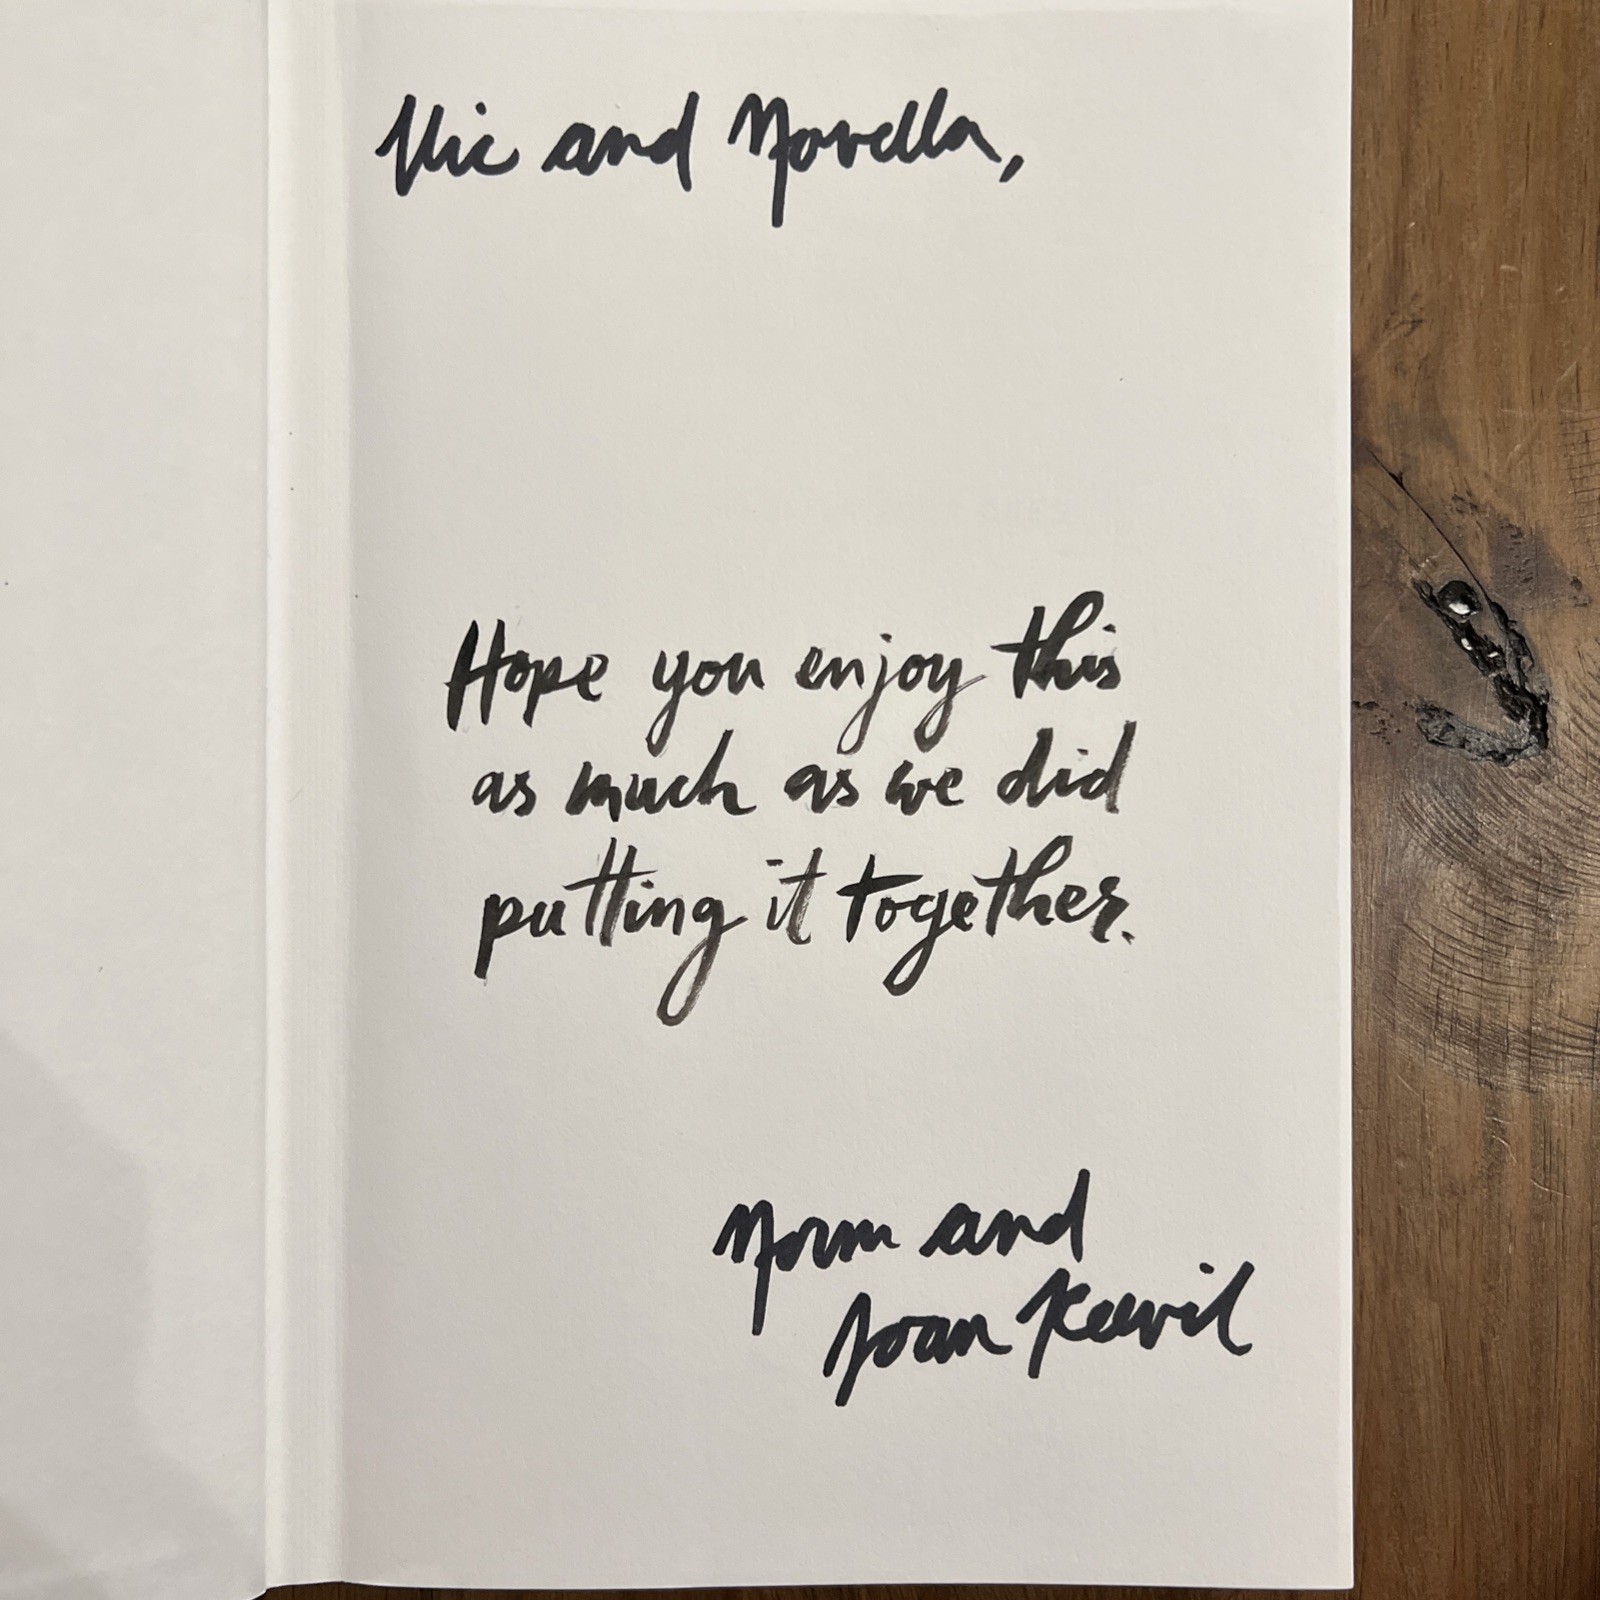 Vic and Novella,
Hope you enjoy this
as much as we did
putting it together.
Norm and
Joan Keevil